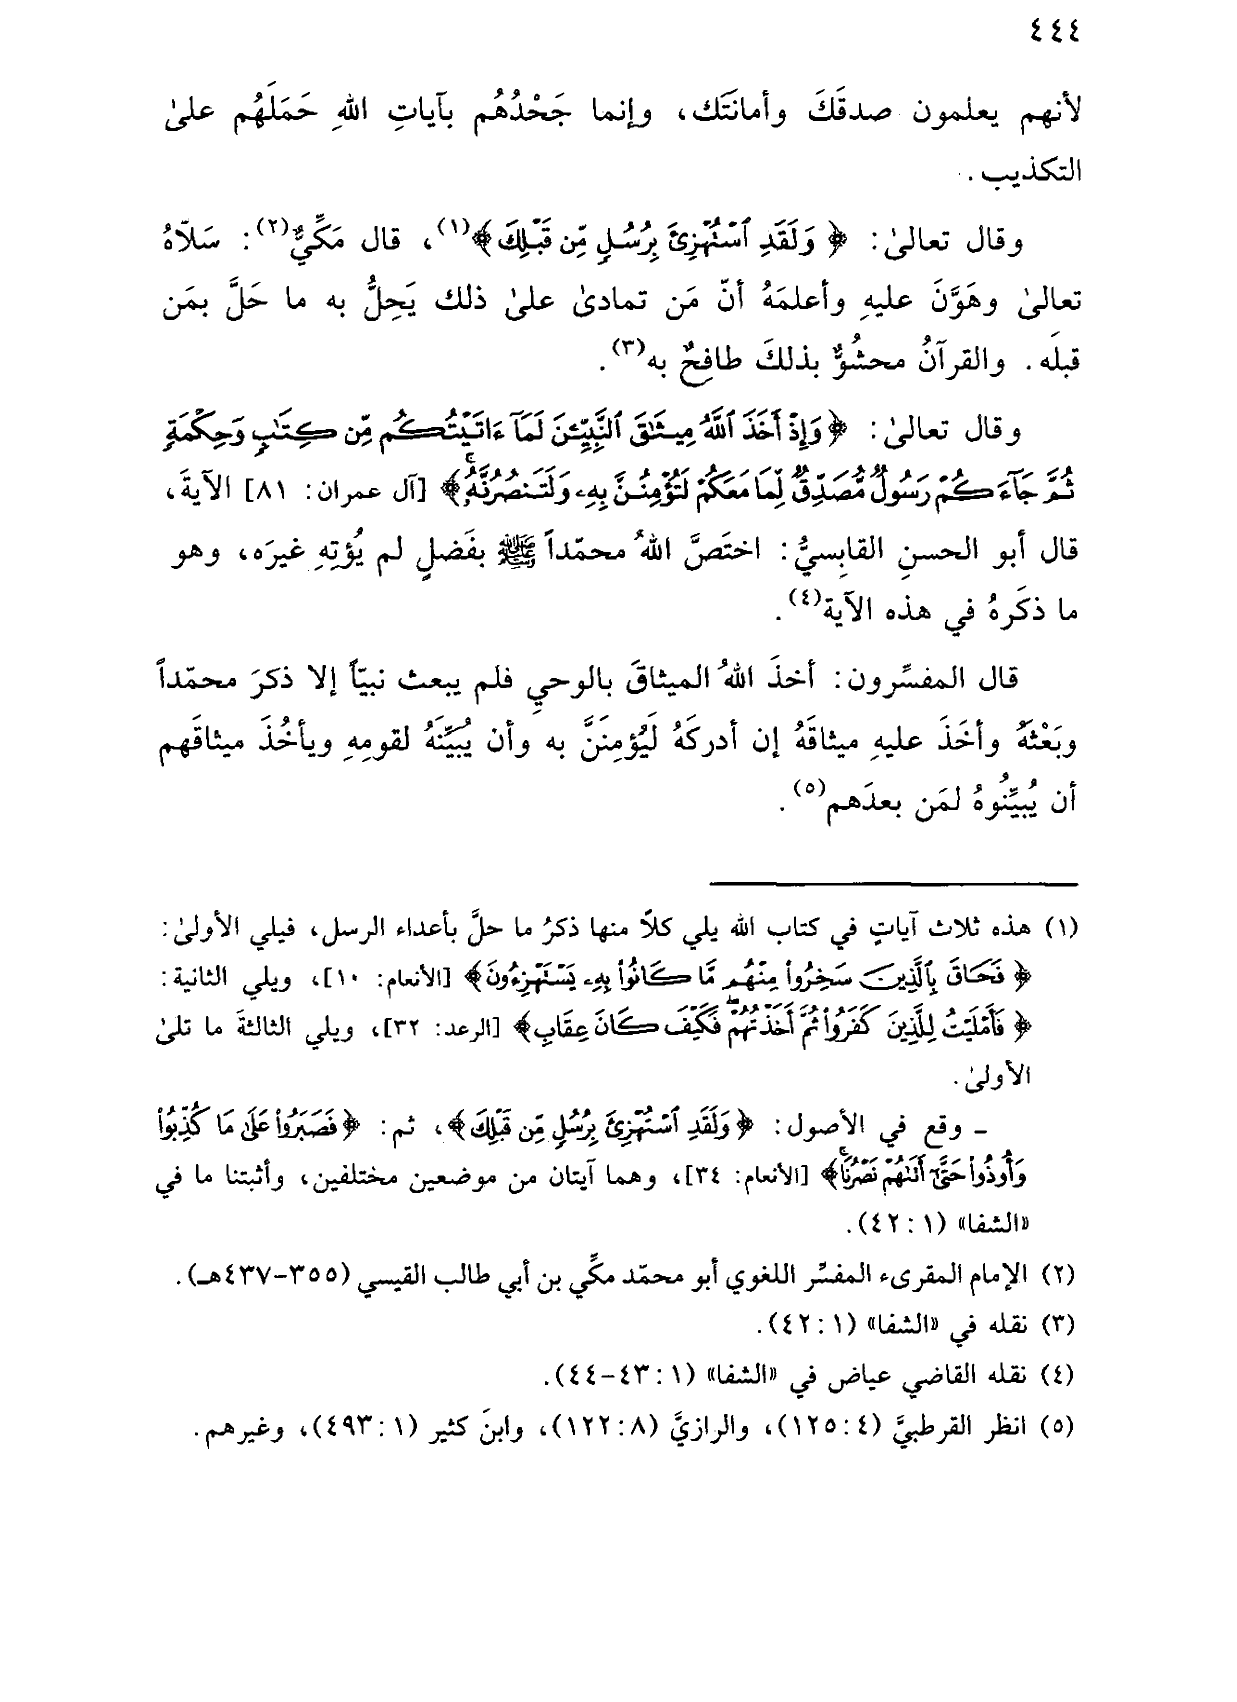 ٤٤٤
لأنهم يعلمون صدقَكَ وأمانَتَك، وإنما جَحْدُهُم بآياتِ اللهِ حَمَلَهُم علىٰ
التكذيب.
وقال تعالىٰ: ﴿وَلَقَدِ ٱسْتُهْزِئَ بِرُسُلٍ مِّن قَبْلِكَ﴾(١)، قال مَكِّيٌّ(٢): سَلاّهُ
تعالىٰ وهَوَّنَ عليهِ وأعلمَهُ أنّ مَن تمادىٰ علىٰ ذلك يَحِلُّ به ما حَلَّ بمَن
قبلَه. والقرآنُ محشُوٌّ بذلكَ طافِحٌ به(٣).
وقال تعالىٰ: ﴿وَإِذْ أَخَذَ ٱللَّهُ مِيثَٰقَ ٱلنَّبِيِّـۧنَ لَمَآ ءَاتَيْتُكُم مِّن كِتَٰبٍ وَحِكْمَةٍ
ثُمَّ جَآءَكُمْ رَسُولٌ مُّصَدِّقٌ لِّمَا مَعَكُمْ لَتُؤْمِنُنَّ بِهِۦ وَلَتَنصُرُنَّهُۥۚ﴾ [آل عمران: ٨١] الآيةَ،
قال أبو الحسنِ القابِسيُّ: اختَصَّ اللهُ محمّداً ﷺ بفَضلٍ لم يُؤتِهِ غيرَه، وهو
ما ذكَرهُ في هذه الآية(٤).
قال المفسِّرون: أخذَ اللهُ الميثاقَ بالوحيِ فلم يبعث نبيّاً إلا ذكرَ محمّداً
وبَعْثَهُ وأخَذَ عليهِ ميثاقَهُ إن أدركَهُ لَيُؤمِنَنَّ به وأن يُبيِّنَهُ لقومِهِ ويأخُذَ ميثاقَهم
أن يُبيِّنُوهُ لمَن بعدَهم(٥).
(١) هذه ثلاث آياتٍ في كتاب الله يلي كلاً منها ذكرُ ما حلَّ بأعداء الرسل، فيلي الأولىٰ:
﴿فَحَاقَ بِٱلَّذِينَ سَخِرُوا۟ مِنْهُم مَّا كَانُوا۟ بِهِۦ يَسْتَهْزِءُونَ﴾ [الأنعام: ١٠]، ويلي الثانية:
﴿فَأَمْلَيْتُ لِلَّذِينَ كَفَرُوا۟ ثُمَّ أَخَذْتُهُمْ ۖ فَكَيْفَ كَانَ عِقَابِ﴾ [الرعد: ٣٢]، ويلي الثالثةَ ما تلىٰ
الأولىٰ.
ـ وقع في الأصول: ﴿وَلَقَدِ ٱسْتُهْزِئَ بِرُسُلٍ مِّن قَبْلِكَ﴾، ثم: ﴿فَصَبَرُوا۟ عَلَىٰ مَا كُذِّبُوا۟
وَأُوذُوا۟ حَتَّىٰٓ أَتَىٰهُمْ نَصْرُنَاۚ﴾ [الأنعام: ٣٤]، وهما آيتان من موضعين مختلفين، وأثبتنا ما في
«الشفا» (١: ٤٢).
(٢) الإمام المقرىء المفسِّر اللغوي أبو محمّد مكِّي بن أبي طالب القيسي (٣٥٥-٤٣٧هـ).
(٣) نقله في «الشفا» (١: ٤٢).
(٤) نقله القاضي عياض في «الشفا» (١: ٤٣-٤٤).
(٥) انظر القرطبيَّ (٤: ١٢٥)، والرازيَّ (٨: ١٢٢)، وابنَ كثير (١: ٤٩٣)، وغيرهم.